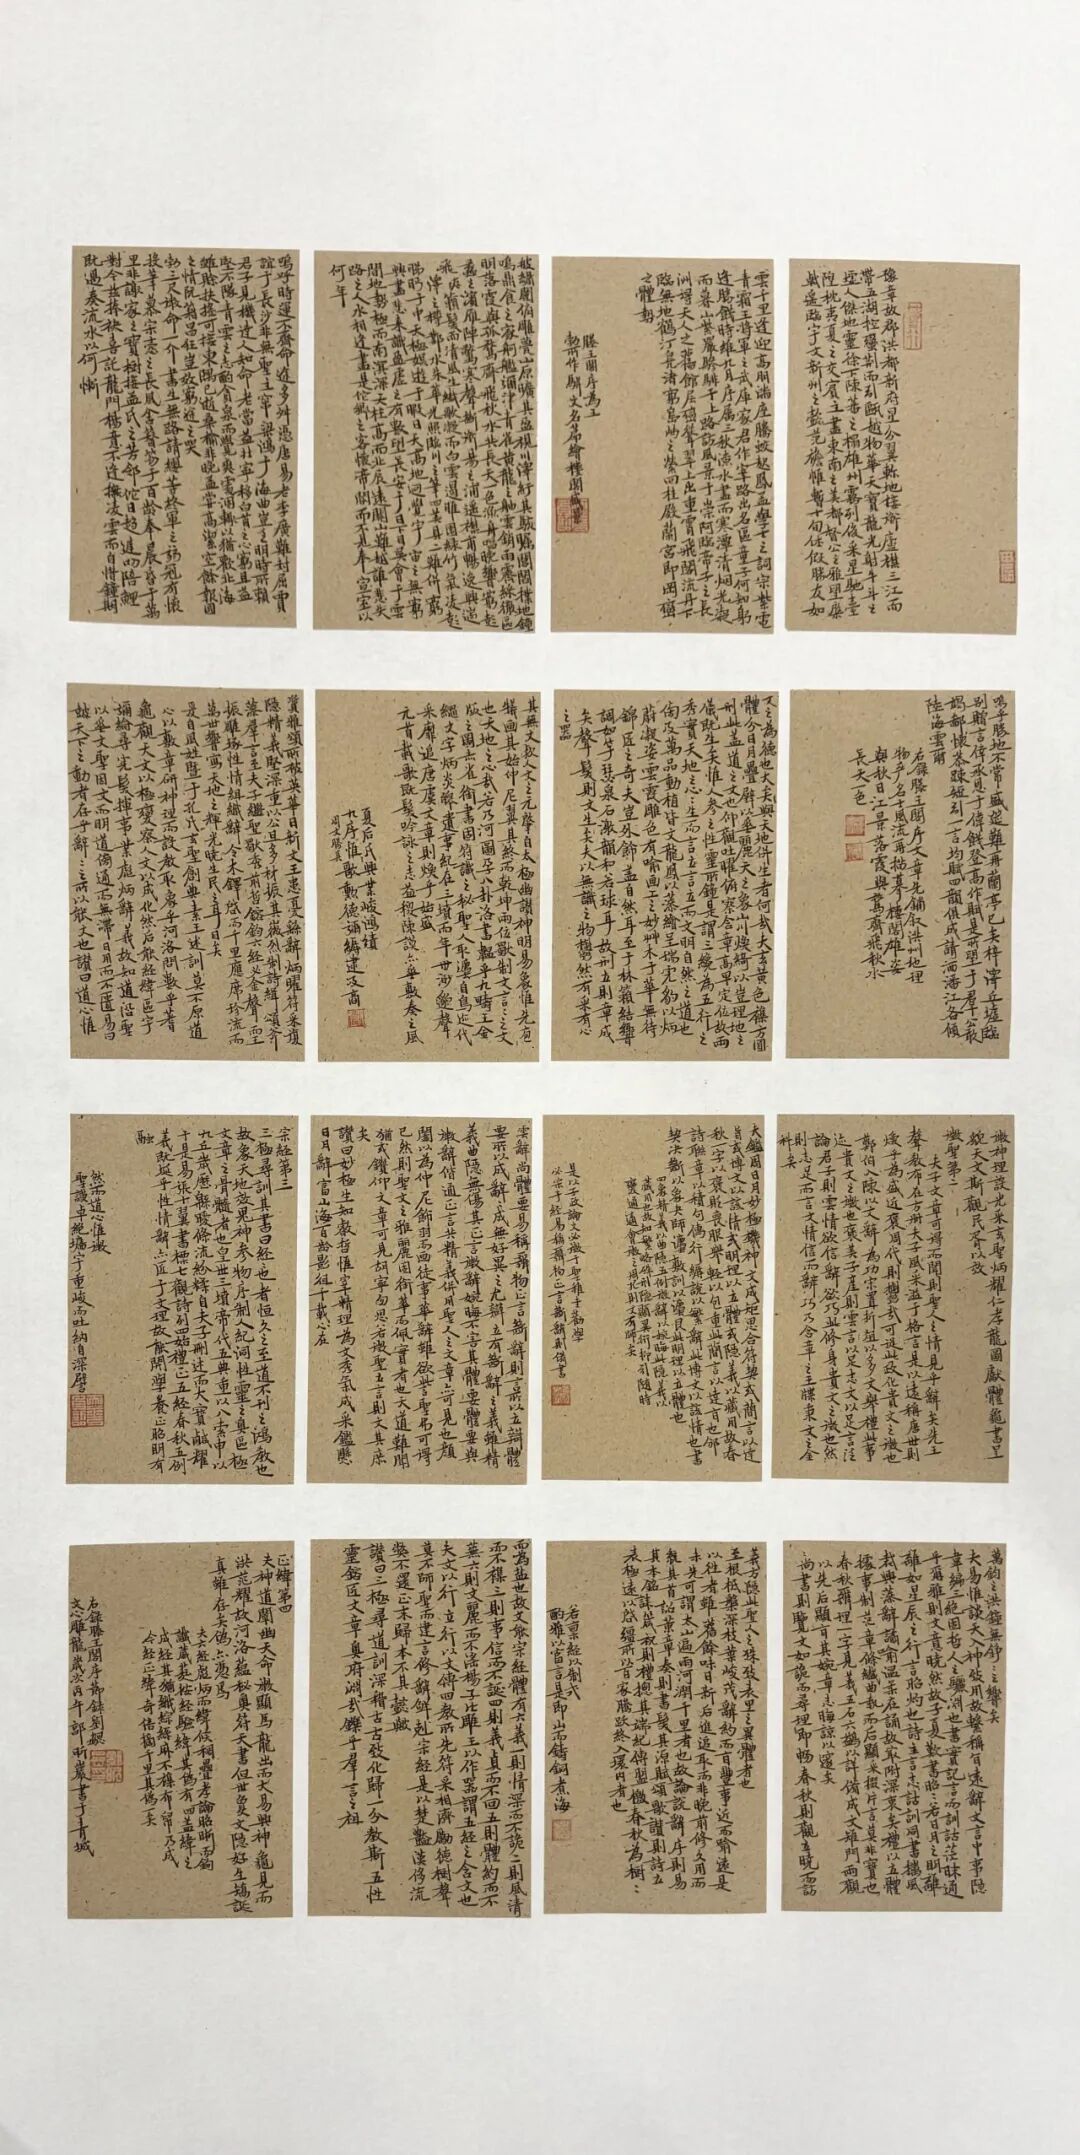 豫章故郡洪都新府星分翼軫地接衡廬襟三江而
帶五湖控蠻荊而引甌越物華天寶龍光射牛斗之
墟人傑地靈徐孺下陳蕃之榻雄州霧列俊采星馳臺
隍枕夷夏之交賓主盡東南之美都督公之雅望棨
戟遙臨宇文新州之懿範襜帷暫十旬休假勝友如
雲千里逢迎高朋滿座騰蛟起鳳孟學士之詞宗紫電
青霜王將軍之武庫家君作宰路出名區童子何知躬
逢勝餞時維九月序屬三秋潦水盡而寒潭清烟光凝
而暮山紫儼驂騑于上路訪風景于崇阿臨帝子之長
洲得天人之舊館層巒聳翠上出重霄飛閣流丹下
臨無地鶴汀鳧渚窮島嶼之縈回桂殿蘭宮即岡巒
之體勢
滕王閣序為王
勃所作駢文名篇繪樓閣盛景
披繡闥俯雕甍山原曠其盈視川澤紆其駭矚閭閻撲地鐘
鳴鼎食之家舸艦彌津青雀黃龍之舳雲銷雨霽彩徹區
明落霞與孤鶩齊飛秋水共長天一色漁舟唱晚響窮彭
蠡之濱雁陣驚寒聲斷衡陽之浦遙襟甫暢逸興遄
飛爽籟發而清風生纖歌凝而白雲遏睢園綠竹氣凌彭
澤之樽鄴水朱華光照臨川之筆四美具二難併窮
睇眄于中天極娛遊于暇日天高地迥覺宇宙之無窮
興盡悲來識盈虛之有數望長安于日下目吳會于雲
間地勢極而南溟深天柱高而北辰遠關山難越誰悲失
路之人水相逢盡是他鄉之客懷帝閽而不見奉宣室以
何年
嗚呼時運不齊命途多舛馮唐易老李廣難封屈賈
誼于長沙非無聖主竄梁鴻于海曲豈乏明時所賴
君子見機達人知命老當益壯寧移白首之心窮且益
堅不墜青雲之志酌貪泉而覺爽處涸轍以猶歡北海
雖賒扶搖可接東隅已逝桑榆非晚孟嘗高潔空餘報國
之情阮籍猖狂豈效窮途之哭
勃三尺微命一介書生無路請纓等終軍之弱冠有懷
投筆慕宗愨之長風舍簪笏于百齡奉晨昏于萬
里非謝家之寶樹接孟氏之芳鄰他日趨庭叨陪鯉
對今茲捧袂喜託龍門楊意不逢撫凌雲而自惜鍾期
既遇奏流水以何慚
嗚乎勝地不常盛筵難再蘭亭已矣梓澤丘墟臨
別贈言幸承恩于偉餞登高作賦是所望于群公敢
竭鄙懷恭疏短引一言均賦四韻俱成請灑潘江各傾
陸海雲爾
右錄滕王閣序文章先鋪叙洪州地理
物產名士風流再描摹樓閣雄姿
與秋日江景落霞與孤鶩齊飛秋水
長天一色
文之為德也大矣與天地併生者何哉夫玄黃色雜方圓
體分日月疊璧以垂麗天之象山川煥綺以鋪理地之
形此蓋道之文也仰觀吐曜俯察含章高卑定位故兩
儀既生矣惟人參之性靈所鍾是謂三才為五行之
秀實天地之心心生而言立言立而文明自然之道也
傍及萬品動植皆文龍鳳以藻繪呈瑞虎豹以炳
蔚凝姿雲霞雕色有喻畫工之妙草木賁華無待
錦匠之奇夫豈外飾蓋自然耳至于林籟結響
調如竽瑟泉石激韻和若球鍠故形立則章成
矣聲發則文生矣夫以無識之物鬱然有采有心
之器
其無文歟人文之元肇自太極幽讚神明易象惟先庖
犧畫其始仲尼翼其終而乾坤兩位獨制文言言之文
也天地之心哉若乃河圖孕八卦洛書韞乎九疇玉
版金鏤之實丹文綠牒之華誰其尸之亦神理而已自鳥跡代
繩文字始炳炎皞遺事紀在三墳而年世渺邈聲
采靡追唐虞文章則煥乎始盛
元首載歌既發吟詠之志益稷陳謨亦垂敷奏之風
夏后氏興業峻鴻績
九序惟歌勳德彌縟逮及商
周文勝其質
雅頌所被英華日新文王患憂繇辭炳曜符采複
隱精義堅深重以公旦多材振其徽烈制詩緝頌斧
藻群言至夫子繼聖獨秀前哲鎔鈞六經必金聲而玉
振雕琢性情組織辭令木鐸啓而千里應席珍流而
萬世響寫天地之輝光曉生民之耳目矣
爰自風姓暨于孔氏玄聖創典素王述訓莫不原道
心以敷章研神理而設教取象乎河洛問數乎蓍
龜觀天文以極變察人文以成化然后能經緯區宇
彌綸彝憲發揮事業彪炳辭義故知道沿聖
以垂文聖因文而明道旁通而無滯日用而不匱易曰
鼓天下之動者存乎辭辭之所以能鼓天下者乃道之文也讚曰道心惟
微神理設光采玄聖炳耀仁孝龍圖獻體龜書呈
貌天文斯觀民胥以效
徵聖第二
夫子文章可得而聞則聖人之情見乎辭矣先王
聲教布在方冊夫子風采溢于格言是以遠稱唐世則
煥乎為盛近褒周代則鬱哉可從此政化貴文之徵也
鄭伯入陳以文辭為功宋置折俎以多文舉禮此事
迹貴文之徵也褒美子產則雲言以足志文以足言泛
論君子則雲情欲信辭欲巧此修身貴文之徵也然
則志足而言文情信而辭巧乃含章之玉牒秉文之金
科矣
夫鑑周日月妙極機神文成規矩思合符契或簡言以達
旨或博文以該情或明理以立體或隱義以藏用故春
秋一字以褒貶喪服舉輕以包重此簡言以達旨也邠
詩聯章以積句儒行縟說以繁辭此博文以該情也書
契決斷以象夬文章昭晰以象離此明理以立體也
四象精義以曲隱五例微辭以婉晦此隱義以
藏用也故知繁略殊形隱顯異術抑引隨時
變通適會徵之周孔則文有師矣
是以子政論文必徵于聖稚圭勸學
必宗于經易稱辨物正言斷辭則備書
雲辭尚體要弗惟好異故知正言所以立辯體
要所以成辭辭成無好異之尤辯立有斷辭之義雖精
義曲隱無傷其正言微辭婉晦不害其體要體要與
微辭偕通正言共精義併用聖人之文章亦可見也顏
闔以為仲尼飾羽而畫徒事華辭雖欲訾聖弗可得
已然則聖文之雅麗固銜華而佩實者也天道難聞
猶或鑽仰文章可見胡寧勿思若徵聖立言則文其庶
矣
讚曰妙極生知叡哲惟宰精理為文秀氣成采鑑懸
日月辭富山海百齡影徂千載心在
宗經第三
三極彝訓其書曰經經也者恒久之至道不刊之鴻教也
故象天地效鬼神參物序制人紀洞性靈之奧區極
文章之骨髓者也皇世三墳帝代五典重以八索申以
九丘歲歷綿曖條流紛糅自夫子刪述而大寶咸耀
于是易張十翼書標七觀詩列四始禮正五經春秋五例
義既埏乎性情辭亦匠于文理故能開學養正昭明有
融
然而道心惟微
聖謨卓絕墻宇重峻而吐納自深譬
萬鈞之洪鐘無錚錚之響矣
夫易惟談天入神致用故繫稱旨遠辭文言中事隱
韋編三絕固哲人之驪淵也書實記言而訓詁茫昧通
乎爾雅則文意曉然故子夏歎書昭昭若日月之明離
離如星辰之行言昭灼也詩主言志詁訓同書摛風
裁興藻辭譎喻溫柔在誦故最附深衷矣禮以立體
據事制范章條纖曲執而后顯采掇片言莫非寶也
春秋辨理一字見義五石六鷁以詳備成文雉門兩觀
以先后顯旨其婉章志晦諒以邃矣
尚書則覽文如詭而尋理即暢春秋則觀辭立曉而訪
義方隱此聖人之殊致表里之異體者也
至根柢槃深枝葉峻茂辭約而旨豐事近而喻遠是
以往者雖舊餘味日新后進追取而非晚前修久用而
未先可謂太山遍雨河潤千里者也故論說辭序則易
統其首詔策章奏則書發其源賦頌歌讚則詩立
其本銘誄箴祝則禮總其端紀傳盟檄春秋為根
表極遠以啓疆所以百家騰躍終入環內者也
若稟經以制式
酌雅以富言是即山而鑄銅煮海
而為盬也故文能宗經體有六義一則情深而不詭二則風清
而不雜三則事信而不誕四則義貞而不回五則體約而不
蕪六則文麗而不淫楊子比雕玉以作器謂五經之含文也
夫文以行立行以文傳四教所先符采相濟勵德樹聲
莫不師聖而建言修辭鮮克宗經是以楚艷漢侈流
弊不還正末歸本不其懿歟
讚曰三極彝道訓深稽古致化歸一分教斯五性
靈鎔匠文章奧府淵哉鑠乎群言之祖
正緯第四
夫神道闡幽天命微顯馬龍出而大易興神龜見而
洪范耀故河洛蘊秘奧符天書但世夐文隱好生矯誕
真雖存矣偽亦憑焉
夫六經彪炳而緯候稠疊孝論昭晰而鉤
讖葳蕤按經驗緯其偽有四蓋緯之
成經其猶織綜絲麻不雜布帛乃成
今經正緯奇倍摘千里其偽一矣
右錄滕王閣序節錄劉勰
文心雕龍歲次丙午郭昕巖書于青城